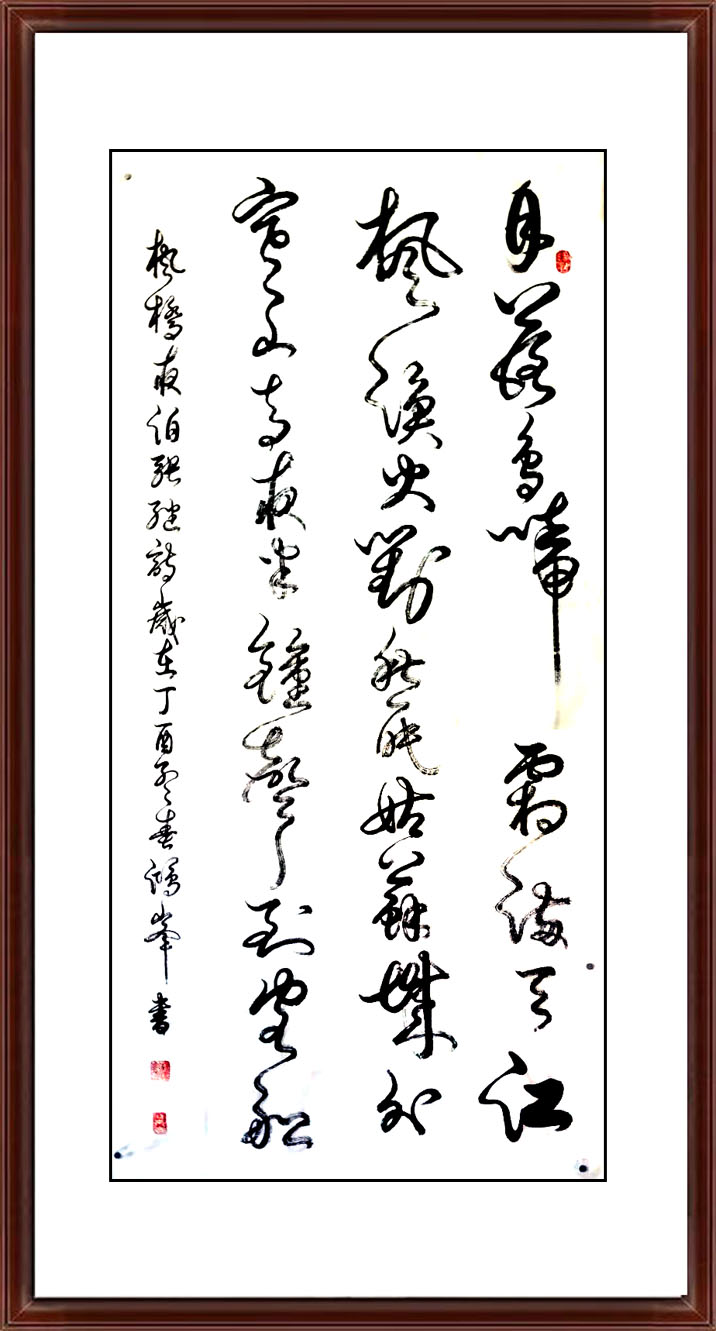 月落烏啼霜滿天江
楓漁火對愁眠姑蘇城外
寒山寺夜半鐘聲到客船
楓橋夜泊張繼詩歲在丁酉孟春鴻峯書